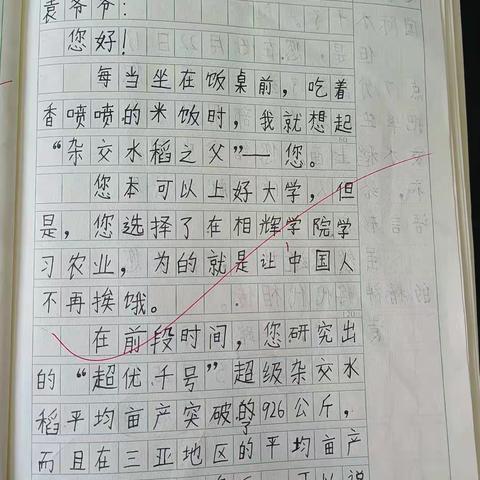 袁爷爷：
您好！
每当坐在饭桌前，吃着
香喷喷的米饭时，我就想起
“杂交水稻之父”——您。
您本可以上好大学，但
是，您选择了在相辉学院学
习农业，为的就是让中国人
不再挨饿。
在前段时间，您研究出
的“超优千号”超级杂交水
稻平均亩产突破的了926公斤，
而且在三亚地区的平均亩产